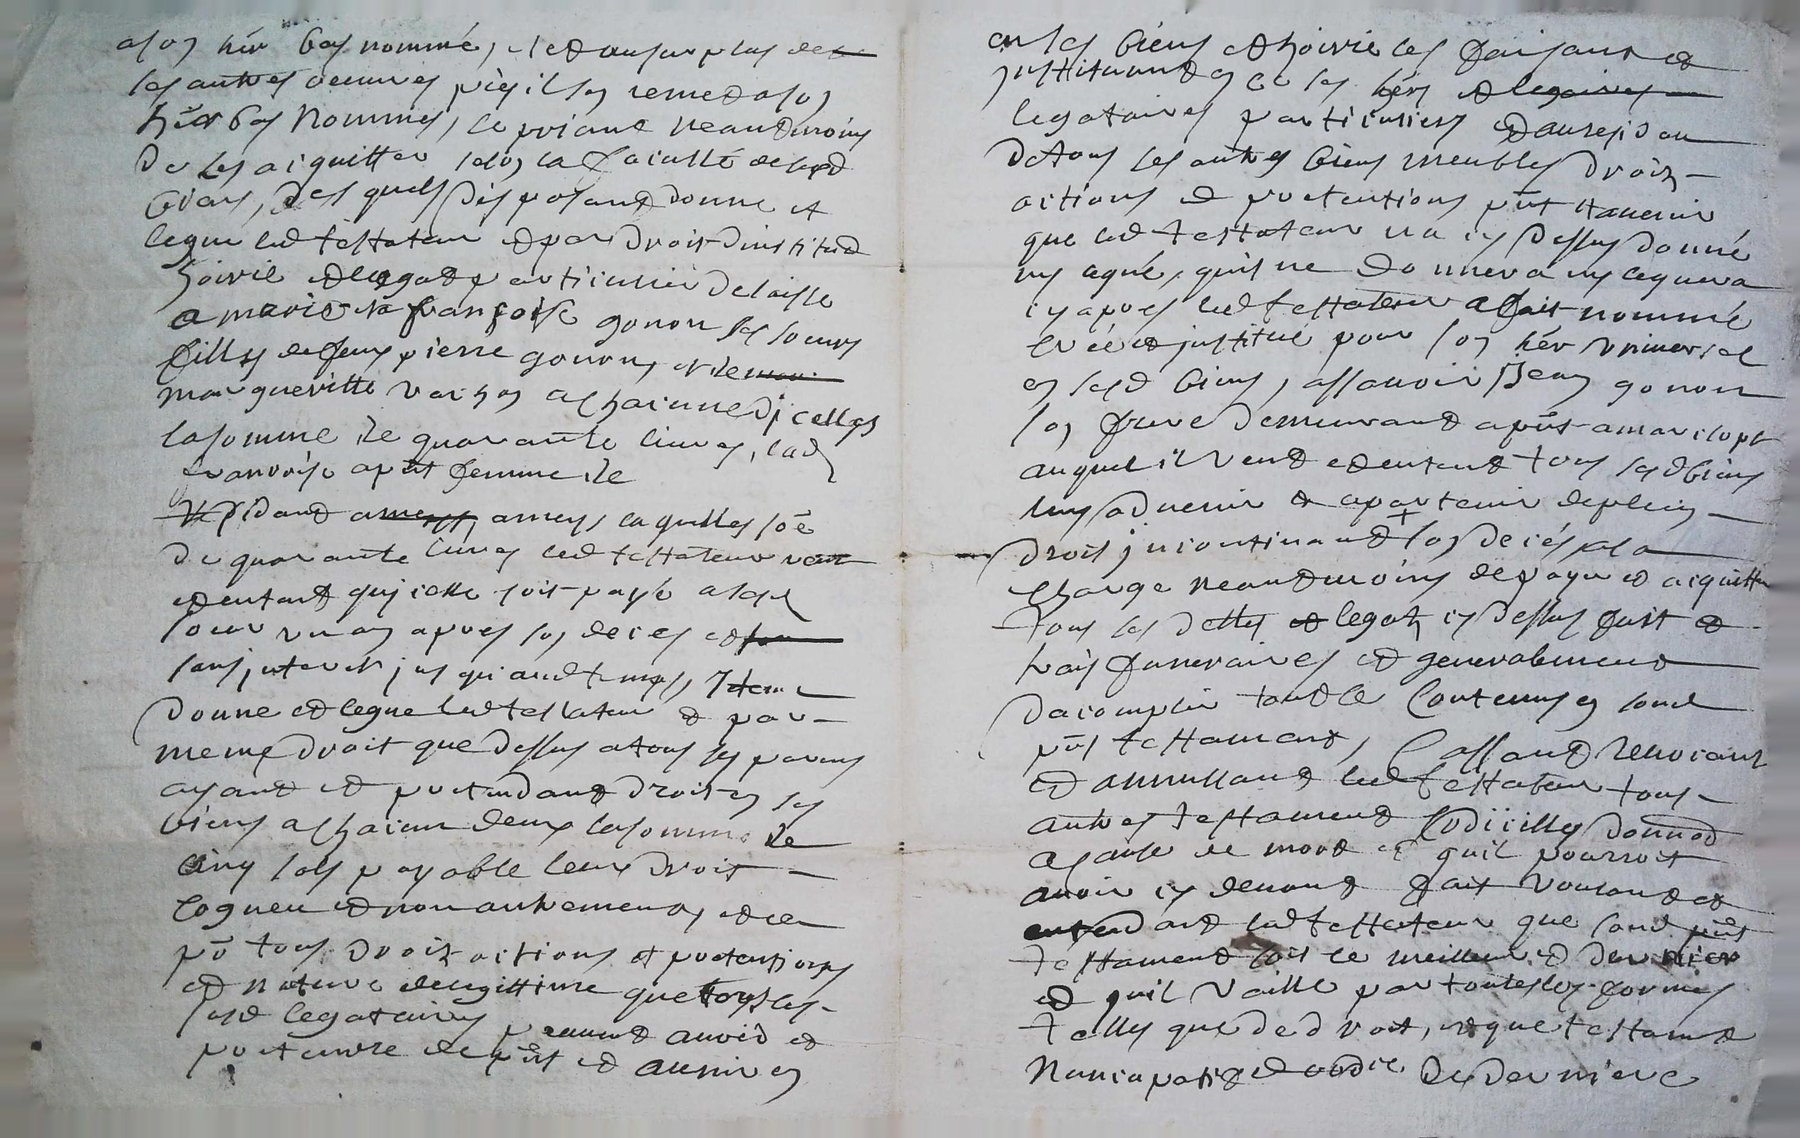 a son hér bas nommé, et au surplus de
ses autres œuvres pies il s'en remed a son
hér bas nommé, le priant neandmoins
de les aiquitter selon la faculté de sesd
biens, des quels disposand donne et
legue led testateur et par droit d'institud
hoirie et legat particulier delaisse
a marie et françoise gonon ses sœurs
filles de feux pierre gonon, et de
margueritte vachon a chaiune d'jcelles
la somme de quarante livres, lad
franroise a pnt femme de
resjdand a ameys, laquelle soê
de quarante livres led testateur veut
et entand qu'jcelle soit payée a sesd
sœur un an apres son deces et
sans jnterest jusqu'aud temps, Jtem
donne et legue led testateur et par
meme droit que dessus a tous ses parens
ayand et pretendand droit en ses
biens a chaiun deux la somme de
cinq sols payable leur droit
cogneu et non autrement, et ce
pr tous droitz actions et pretentions
et nature de legittime que tous les
susd legataires peuvend avoir et
pretendre de pnt et avenir en
en les biens et hoirie les faisant et
jnstituand en ce ses hérs et
legataires particuliers et au residu
de tous ses autres biens meubles droitz
actions et pretentions pnt et avenir
que led testateur n'a cy dessus donné
ny legué, qu'il ne donnera ny leguera
cy apres led testateur a fait nommé
créé et jnstitué pour son hér universel
en sesd biens, assavoir Jean gonon
son frere demeurand a pnt a marclopt
auquel il veut et entend tous sesd biens
luy advenir et apartenir de plein
droit jncontinand son décés a la
charge neandmoins de payer et aiquitter
tous ses dettes et legatz cy dessus fait et
frais funeraires et generalement
d'acomplir tout le contenu en sond
pnt testament, Cassand revocant
et annullant led testateur tous
autres testament codiïilles donnaõ
a cause de mort et qu'il pourroit
avoir cy devand fait voulant et
entendand led testateur que sond pnt
testament soit le meilleur et dernier
et qu'il vaille par toutes les formes
telles que de droit, et que testament
nuncupatif et ordre de derniere